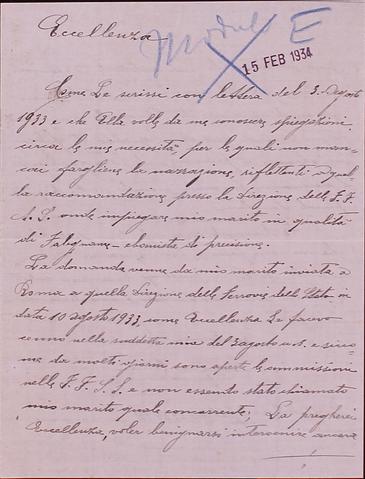 Eccellenza
Modulo E
15 FEB 1934
Come Le scrissi con lettera del 3 Agosto
1933 e che Ella volle da me conoscere spiegazioni
circa le mie necessità, per le quali non man-
cai fargliene la narrazione, riflettenti quel-
la raccomandazione presso la Direzione delle F. F.
S. S. onde impiegare mio marito in qualità
di Falegname - ebanista di precisione.
La domanda venne da mio marito inviata a
Roma a quella Direzione delle Ferrovie dello Stato in
data 10 agosto 1933, come Eccellenza Le facevo
cenno nella suddetta mia del 3 agosto u.s. e sicco-
me da molti giorni sono aperte le ammissioni
nelle F. F. S. S. e non essendo stato chiamato
mio marito quale concorrente; La pregherei
Eccellenza, voler benignarsi intervenire ancora